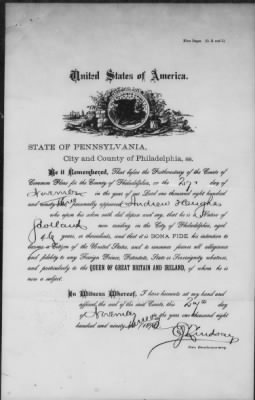 United States of America.
STATE OF PENNSYLVANIA,
City and County of Philadelphia, ss.
Be it Remembered, That before the Prothonotary of the Courts of
Common Pleas for the County of Philadelphia, on the 27th day of
November in the year of our Lord one thousand eight hundred
and ninety personally appeared Andrew Hughes
who upon his solemn oath did depose and say, that he is a Native of
Scotland now residing in the City of Philadelphia, aged
years, or thereabouts, and that it is BONA FIDE his intention to
become a Citizen of the United States, and to renounce forever all allegiance
and fidelity to any Foreign Prince, Potentate, State or Sovereignty whatever,
and particularly to the QUEEN OF GREAT BRITAIN AND IRELAND, of whom he is
now a subject.
In Witness Whereof, I have hereunto set my hand and
affixed the seal of the said Courts, this 27th day
of November in the year one thousand eight
hundred and ninety
Pro Prothonotary